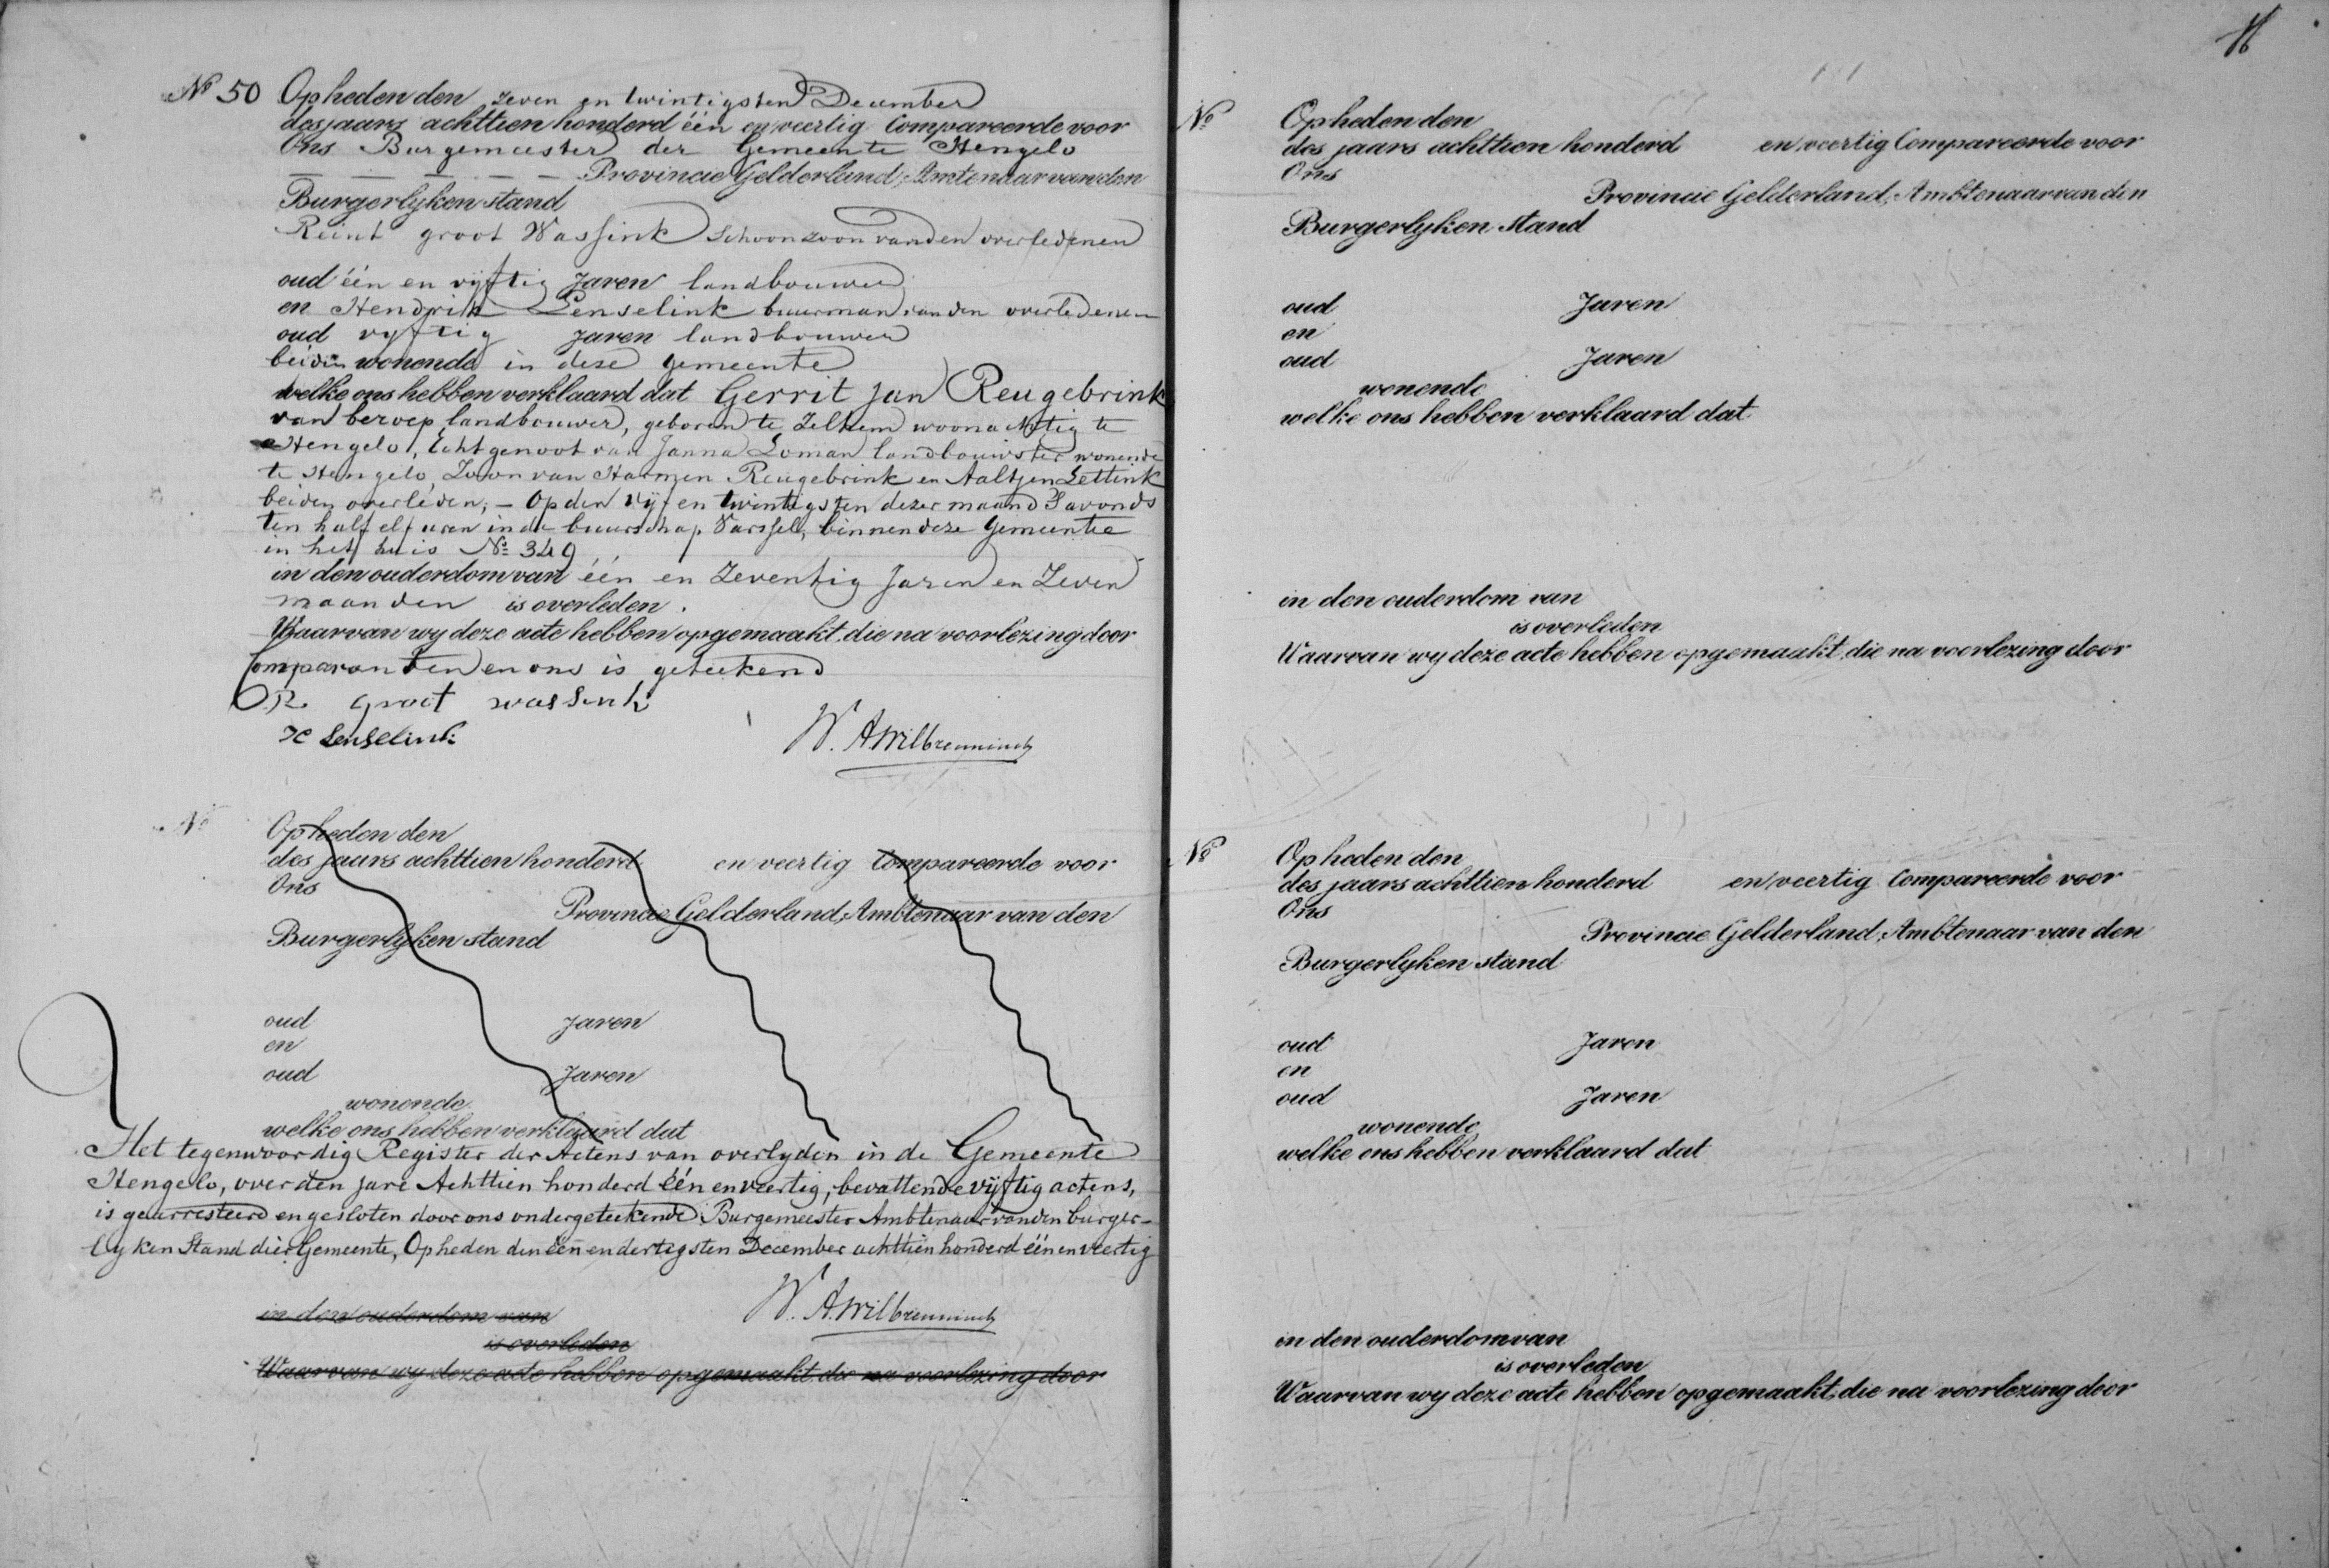 No 50 Op heden den zeven en twintigsten December
des jaars achttien honderd één en veertig Compareerde voor
Ons Burgemeester der Gemeente Hengelo
Provincie Gelderland, Amtenaar van den
Burgerlyken stand
Reint groot Wassink Schoonzoon van den overledenen
oud één en vyftig Jaren landbouwer
en Hendrik Lenselink buurman van den overledenen
oud vyftig Jaren landbouwer
beiden wonende in deze Gemeente
welke ons hebben verklaard dat Gerrit Jan Reugebrink
van beroep landbouwer, geboren te Zelhem woonachtig te
Hengelo, Echtgenoot van Janna Loman landbouwster wonende
te Hengelo, Zoon van Harmen Reugebrink en Aaltjen Lettink
beiden overleden; – Op den vyf en twintigsten dezer maand Savonds
ten half elf uren in de buurschap Varssel, binnen deze Gemeente
in het huis No 349
in den ouderdom van één en Zeventig Jaren en Zeven
maanden is overleden.
Waarvan wy deze acte hebben opgemaakt, die na voorlezing door
Comparanten en ons is geteekend
R. groot wassink
H Lenselink
W. A. Wilbrenninck
No
Op heden den
des jaars achttien honderd en veertig Compareerde voor
Ons
Provincie Gelderland, Ambtenaar van den
Burgerlyken stand
oud Jaren
en
oud Jaren
wonende
welke ons hebben verklaard dat
Het tegenwoordig Register der Actens van overlyden in de Gemeente
Hengelo, over den jare Achttien honderd één en veertig, bevattende vijftig actens,
is gearresteerd en gesloten door ons ondergeteekende Burgemeester Ambtenaar van den burger-
lyken Stand dier Gemeente, Op heden den één en dertigsten December achttien honderd één en veertig
W. A. Wilbrenninck
in den ouderdom van
is overleden
Waarvan wy deze acte hebben opgemaakt, die na voorlezing door
No
Op heden den
des jaars achttien honderd en veertig Compareerde voor
Ons
Provincie Gelderland, Ambtenaar van den
Burgerlyken stand
oud Jaren
en
oud Jaren
wonende
welke ons hebben verklaard dat
in den ouderdom van
is overleden
Waarvan wy deze acte hebben opgemaakt, die na voorlezing door
No
Op heden den
des jaars achttien honderd en veertig Compareerde voor
Ons
Provincie Gelderland, Ambtenaar van den
Burgerlyken stand
oud Jaren
en
oud Jaren
wonende
welke ons hebben verklaard dat
in den ouderdom van
is overleden
Waarvan wy deze acte hebben opgemaakt, die na voorlezing door